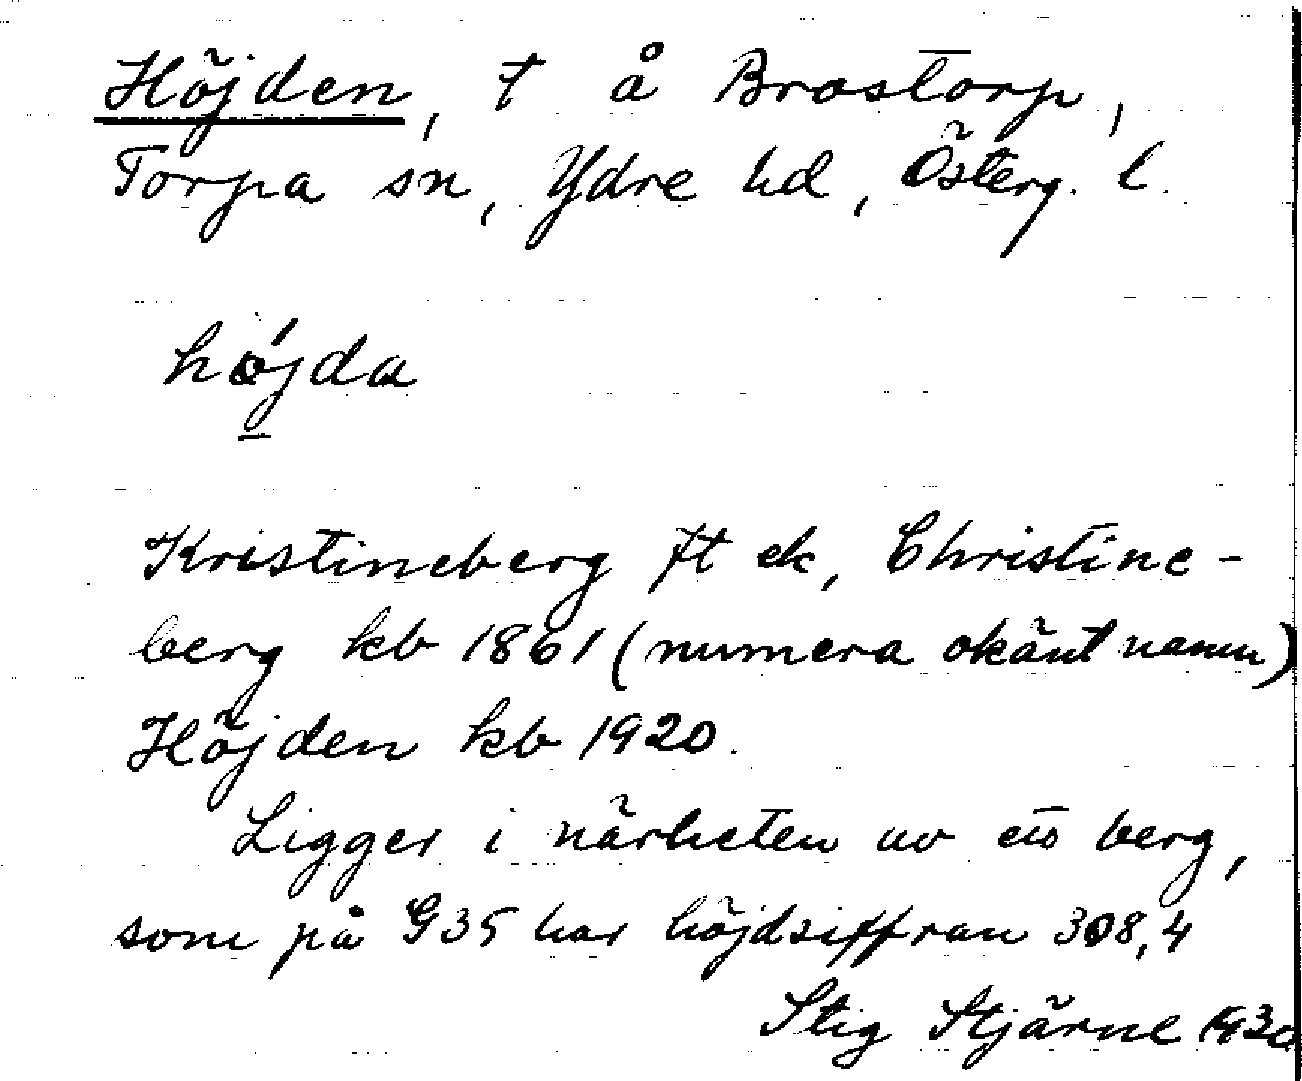 Höjden, t å Brostorp,
Torpa sn, Ydre hd, Österg. l.
hǿjda
Kristineberg ft ek, Christine-
berg kb 1861 (numera okänt namn)
Höjden kb 1920.
Ligger i närheten av ett berg,
som på G35 har höjdsiffran 308,4
Stig Stjärne 1930